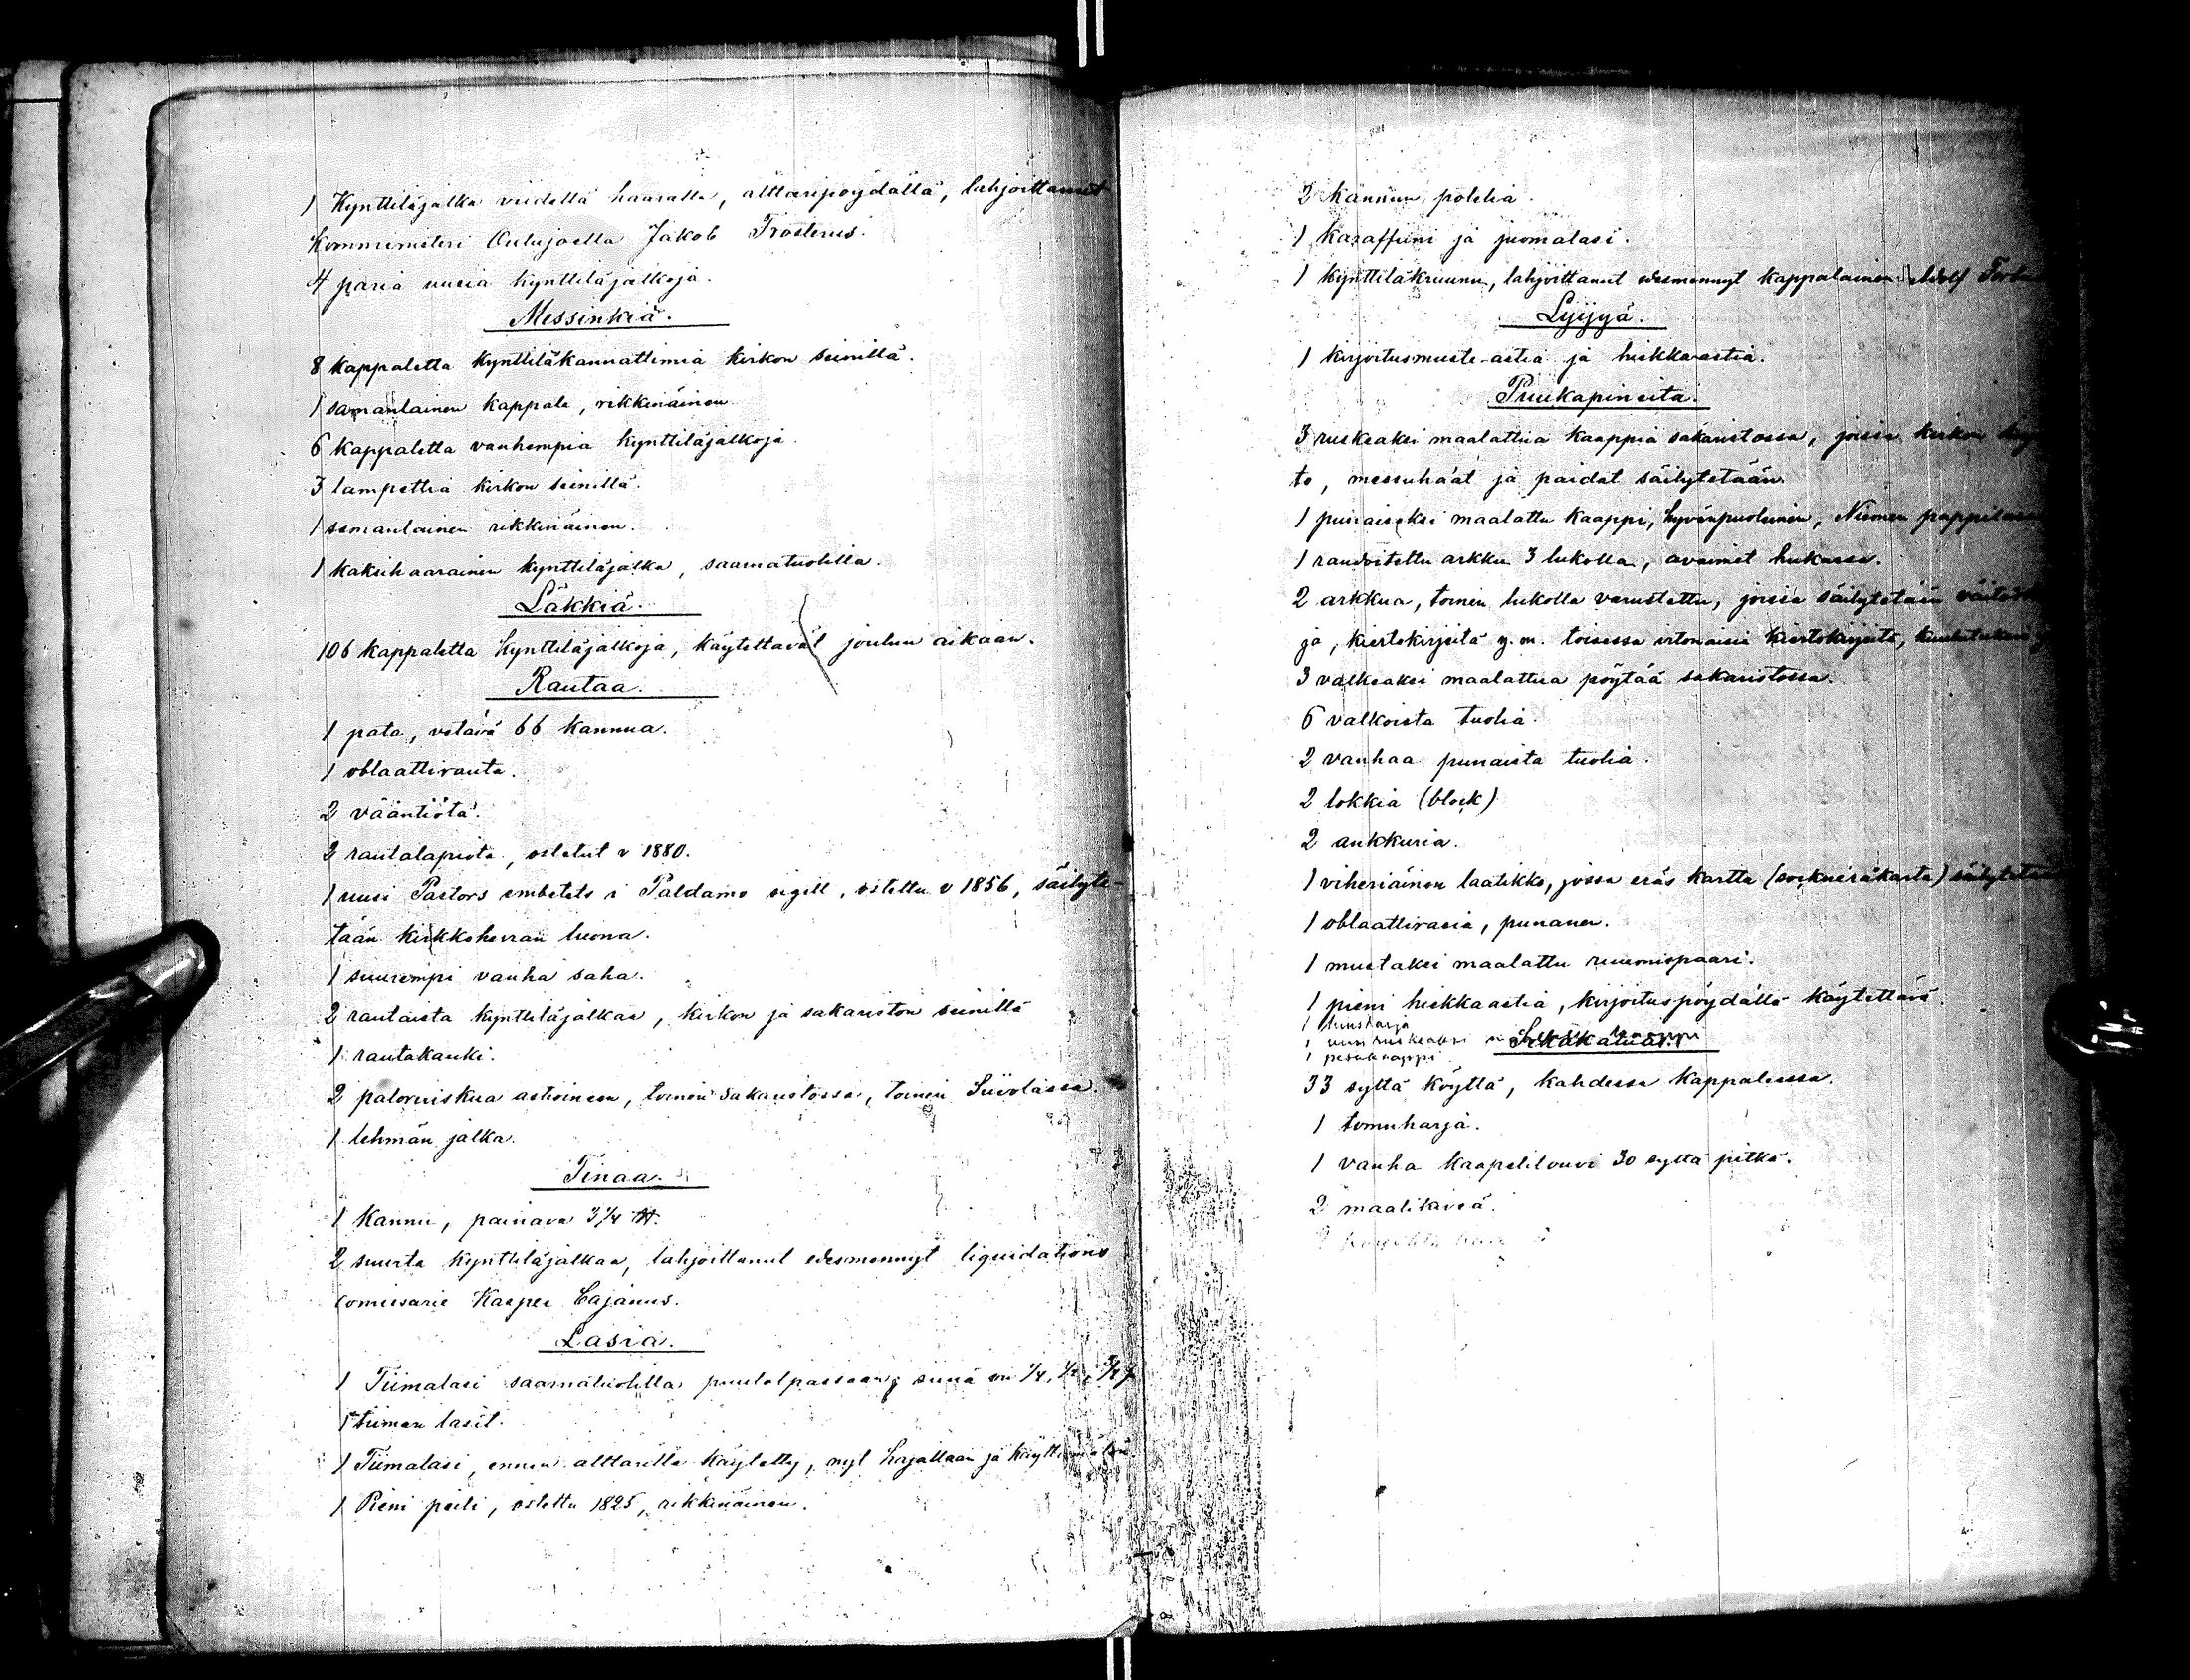 1 Kynttiläjalka viidellä haaralla, alttaripöydällä, lahjoittanut
Komministeri Oulujoella Jakob Frosterus.
4 paria uusia kynttiläjalkoja.
Messinkiä.
8 kappaletta kynttiläkannattimia kirkon seinillä.
1 samanlainen kappale, rikkinäinen
6 kappaletta vanhempia kynttiläjalkoja.
3 lampettia kirkon seinillä.
1 samanlainen rikkinäinen.
1 kaksihaarainen kynttiläjalka, saarnatuolilla.
Läkkiä.
106 kappaletta kynttiläjalkoja, käytettävät joulun aikaan.
Rautaa.
1 pata, vetävä 66 kannua.
1 oblaattirauta.
2 vääntiötä.
2 rautalapiota, ostetut v 1880.
1 uusi Pastors embetets i Paldamo sigill, ostettu v 1856, säilyte-
tään kirkkoherran luona.
1 suurempi vanha saha.
2 rautaista kynttiläjalkaa, kirkon ja sakariston seinillä
1 rautakanki.
2 paloruiskua astioineen, toinen sakaristossa, toinen Siivolassa.
1 lehmän jalka.
Tinaa.
1 Kannu, painava 3 1/4 ℔.
2 suurta kynttiläjalkaa, lahjoittanut edesmennyt liquidations
comissarie Kasper Cajanus.
Lasia.
1 Tiimalasi saarnatuolilla puutolpassaan, siinä on 1/4, 1/2, 3/4 ja
1 tiiman lasit.
1 Tiimalasi, ennen alttarilla käytetty, nyt hajallaan ja
1 Pieni peili, ostettu 1825, rikkinäinen.
2 kannun polelia.
1 karaffiini ja juomalasi.
1 kynttiläkruunu, lahjoittanut edesmennyt kappalainen Adolf
Lyijyä.
1 kirjoitusmuste-astia ja hiekka-astia.
Puukapineita.
3 ruskeaksi maalattua kaappia sakaristossa, joissa kirkon
to, messuhaat ja paidat säilytetään.
1 punaiseksi maalattu kaappi, hyvänpuolinen, Niemen
1 raudoitettu arkku 3 lukolla, avaimet hukassa.
2 arkkua, toinen lukolla varustettu, joissa säilytetään
ja, kiertokirjeitä y.m. toisessa irtonaisia kiertokirjeitä,
3 valkeaksi maalattua pöytää sakaristossa.
6 valkoista tuolia.
2 vanhaa punaista tuolia.
2 lokkia (block)
2 ankkuria.
1 viheriäinen laatikko, jossa eräs kartta (sockneräkarta) säilytetään
1 oblaattirasia, punanen.
1 mustaksi maalattu ruumispaari.
1 pieni hiekka astia, kirjoituspöydällä käytettävä.
1 uusi ruskeaksi
1 pesukaappi
Sekakaluar.
33 syltä köyttä, kahdessa kappaleessa.
1 tomuharja.
1 vanha kaapelitouvi 30 syltä pitkä.
2 maalikiviä.